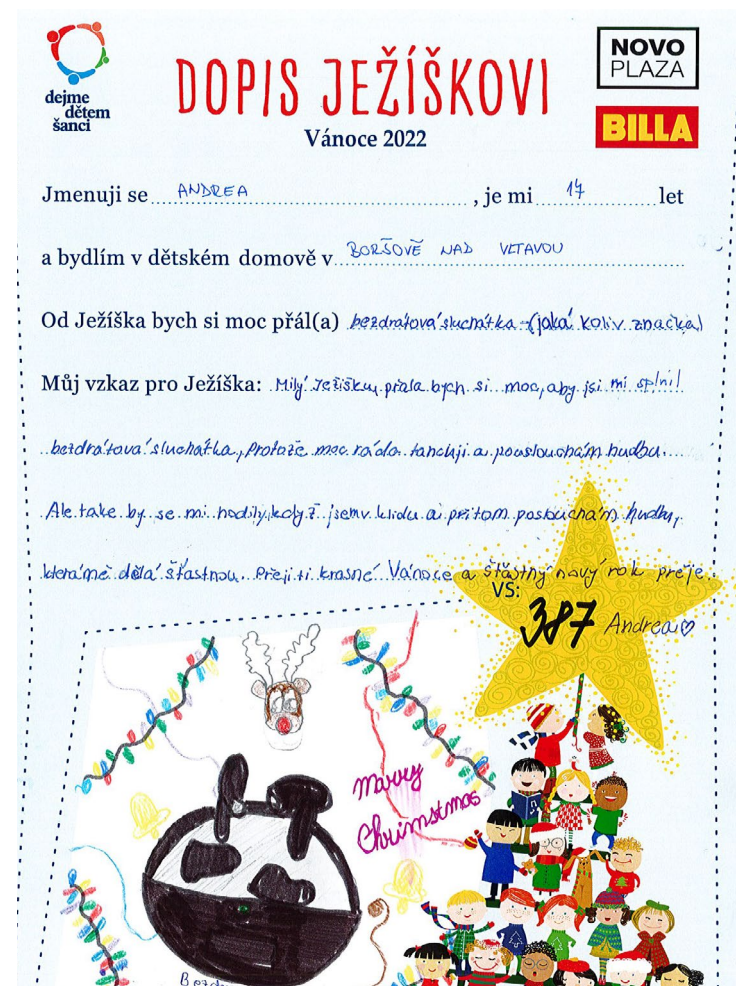 dejme
dětem
šanci
DOPIS JEŽÍŠKOVI
Vánoce 2022
NOVO
PLAZA
BILLA
Jmenuji se ANDREA, je mi 17 let
a bydlím v dětském domově v BORŠOVĚ NAD VLTAVOU
Od Ježíška bych si moc přál(a) bezdrátová sluchátka - (jaká koliv značka)
Můj vzkaz pro Ježíška: Milý Ježíšku, přála bych si moc, aby jsi mi splnil
bezdrátová sluchátka, protože moc ráda tancuji a pouslouchám hudbu.
Ale take by se mi hodily, když jsem v klidu a při tom poslouchám hudbu,
která mě dělá šťastnou. Přeji ti krasné Vánoce a šťastný nový rok přeje
VS:
387 Andrea♡
Marry
Chrimstmas